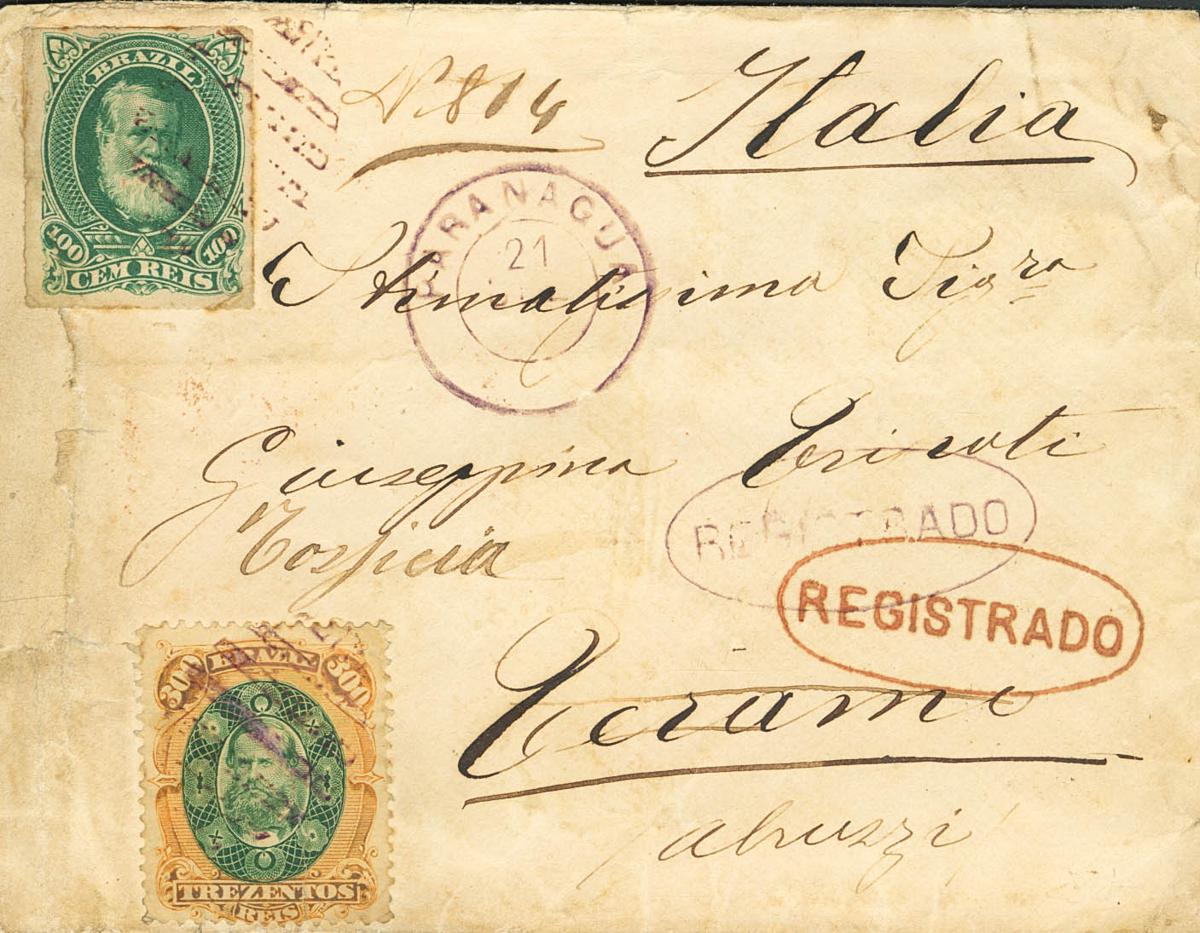 BRAZIL
100 100
CEM REIS
Nº 814
Italia
PARANAGUA
21
Stimatissima Sigra
Giuseppina
Tossicia
REGISTRADO
REGISTRADO
Teramo
abruzzi
300 BRAZIL 300
TREZENTOS
REIS